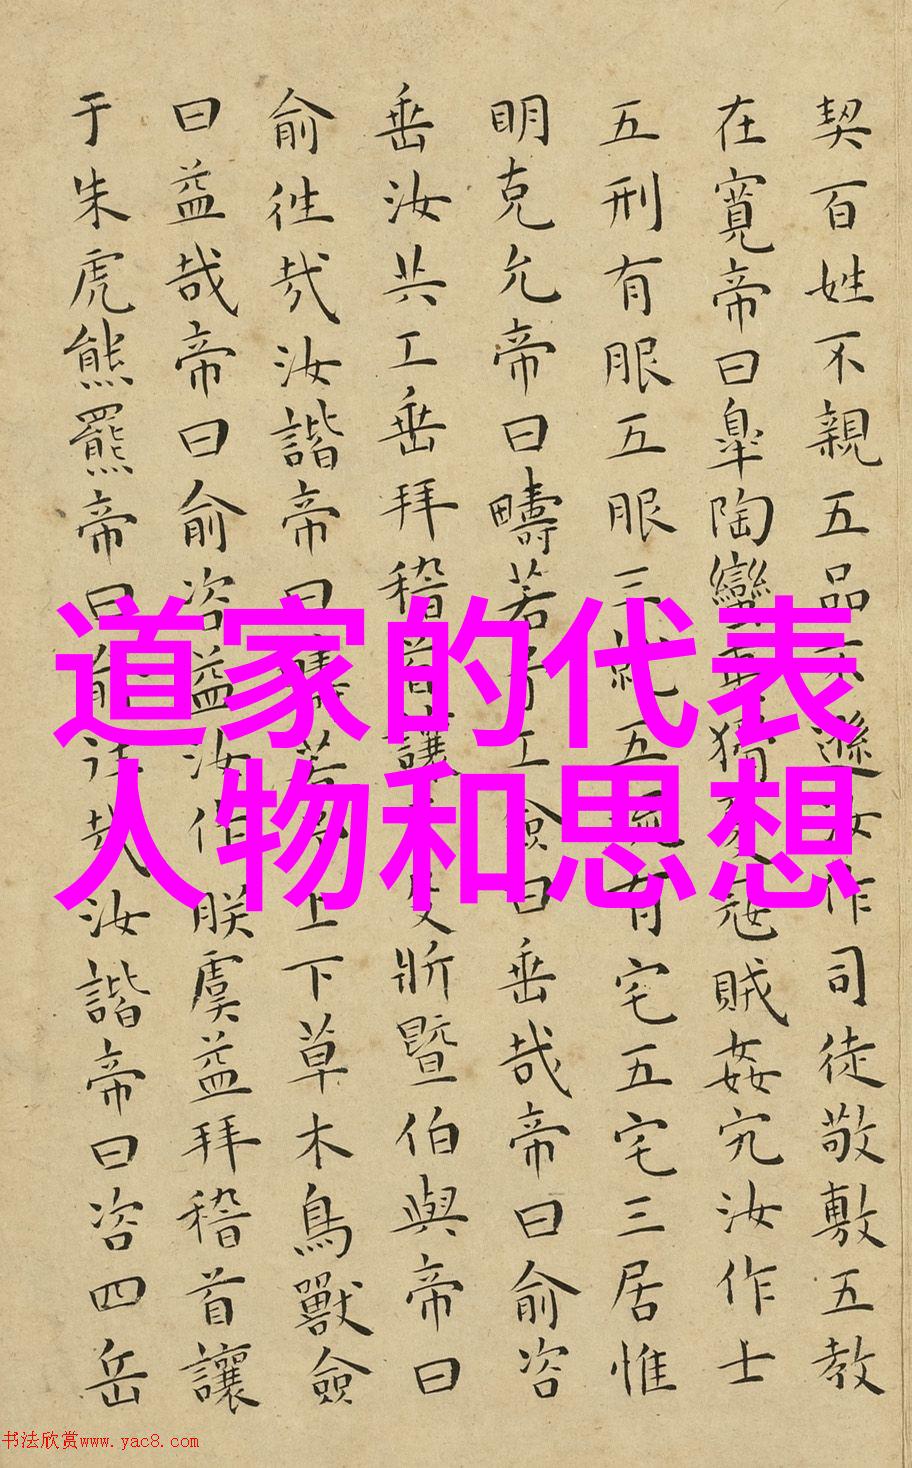 道家的代表
人物和思想
契百姓不親五品不遜汝作司徒敬敷五教
在寬帝曰皋陶蠻夷猾夏寇賊姦宄汝作士
五刑有服五服三就五流有宅五宅三居惟
明克允帝曰疇若予工僉曰垂哉帝曰俞咨
垂汝共工垂拜稽首讓殳斨暨伯與帝曰
俞往哉汝諧帝曰疇若予上下草木鳥獸僉
曰益哉帝曰俞咨益汝作朕虞益拜稽首讓
于朱虎熊羆帝曰俞往哉汝諧帝曰咨四岳
书法欣赏www.yac8.com